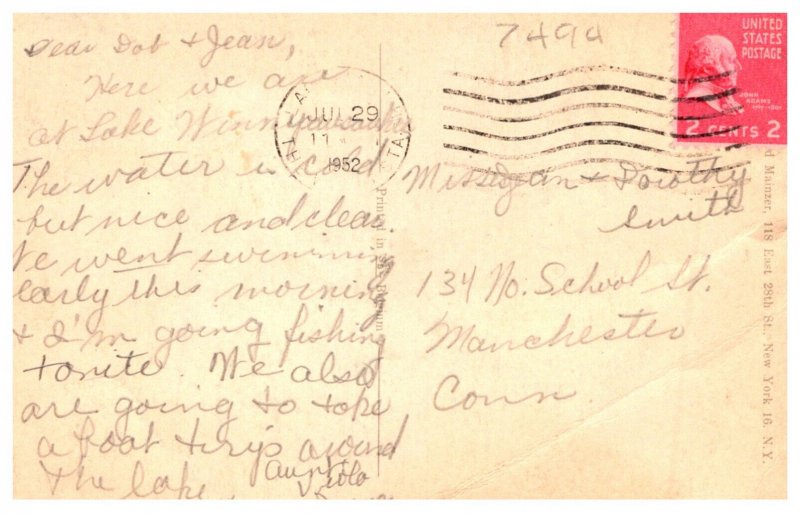 Dear Dot & Jean,
Here we are
at Lake
The water is cold
but nice and clear.
We went swimming
early this morning
& I'm going fishing
tonite. We also
are going to take
a boat trip around
the lake
Aunt
Viola
7494
JUL 29
1952
UNITED
STATES
POSTAGE
JOHN
ADAMS
2 CENTS 2
Misses Jean & Dorothy
Smith
134 No. School St.
Manchester
Conn.
Printed in
Mainzer, 118 East 28th St., New York 16, N.Y.